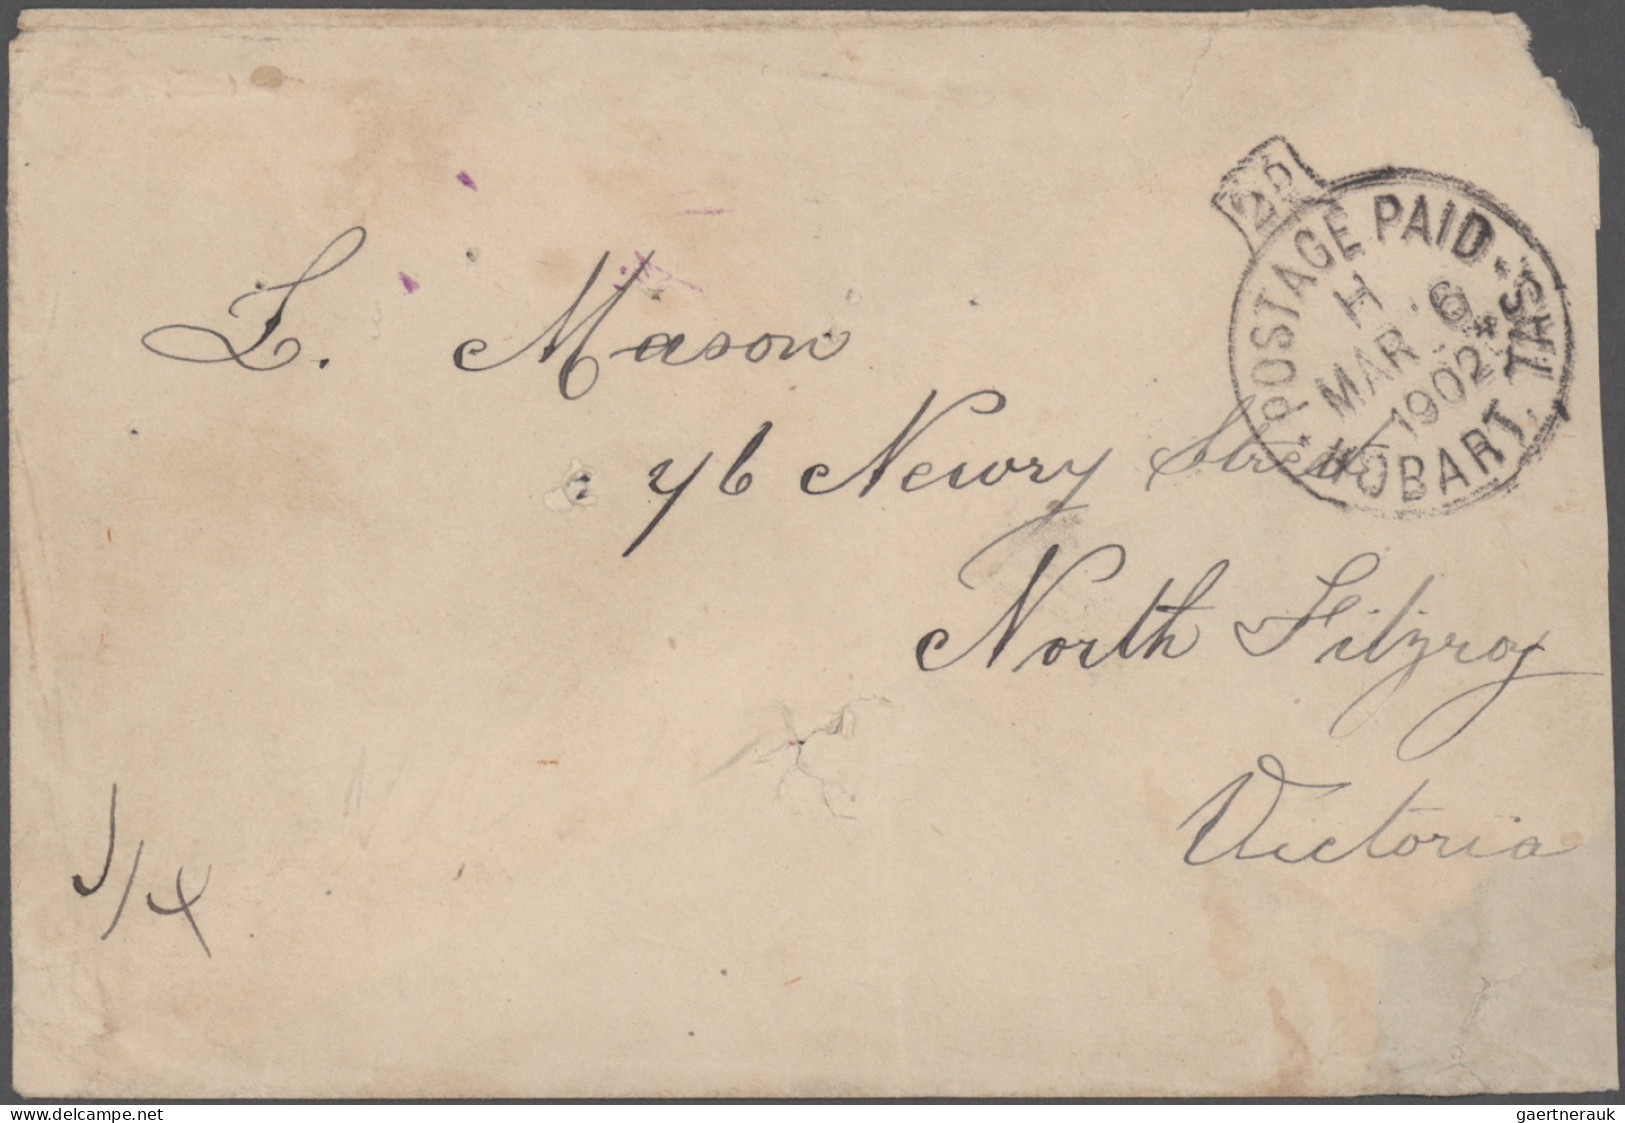 2D
POSTAGE PAID
H 6
MAR
1902
HOBART, TAS
L. Mason
76 Newry Street
North Fitzroy
Victoria
delcampe.net
gaertnerauk